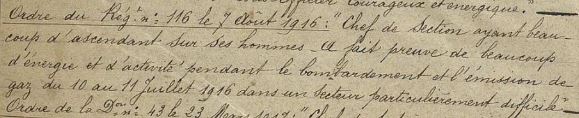 Officier courageux et énergique."
Ordre du Rég.t n: 116 le 7 Août 1916: "Chef de Section ayant beau-
coup d'ascendant sur ses hommes _ A fait preuve de beaucoup
d'énergie et d'activité pendant le bombardement et l'émission de
gaz du 10 au 11 Juillet 1916 dans un Secteur particulièrement difficile"
Ordre de la D.on n: 43 le 23 Mars 1917: "Chef de